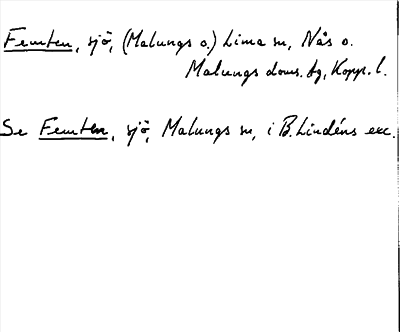 Femten, sjö, (Malungs o.) Lima sn, Nås o.
Malungs doms. fg, Kopp. l.
Se Femten, sjö, Malungs sn, i B. Lindéns exc.